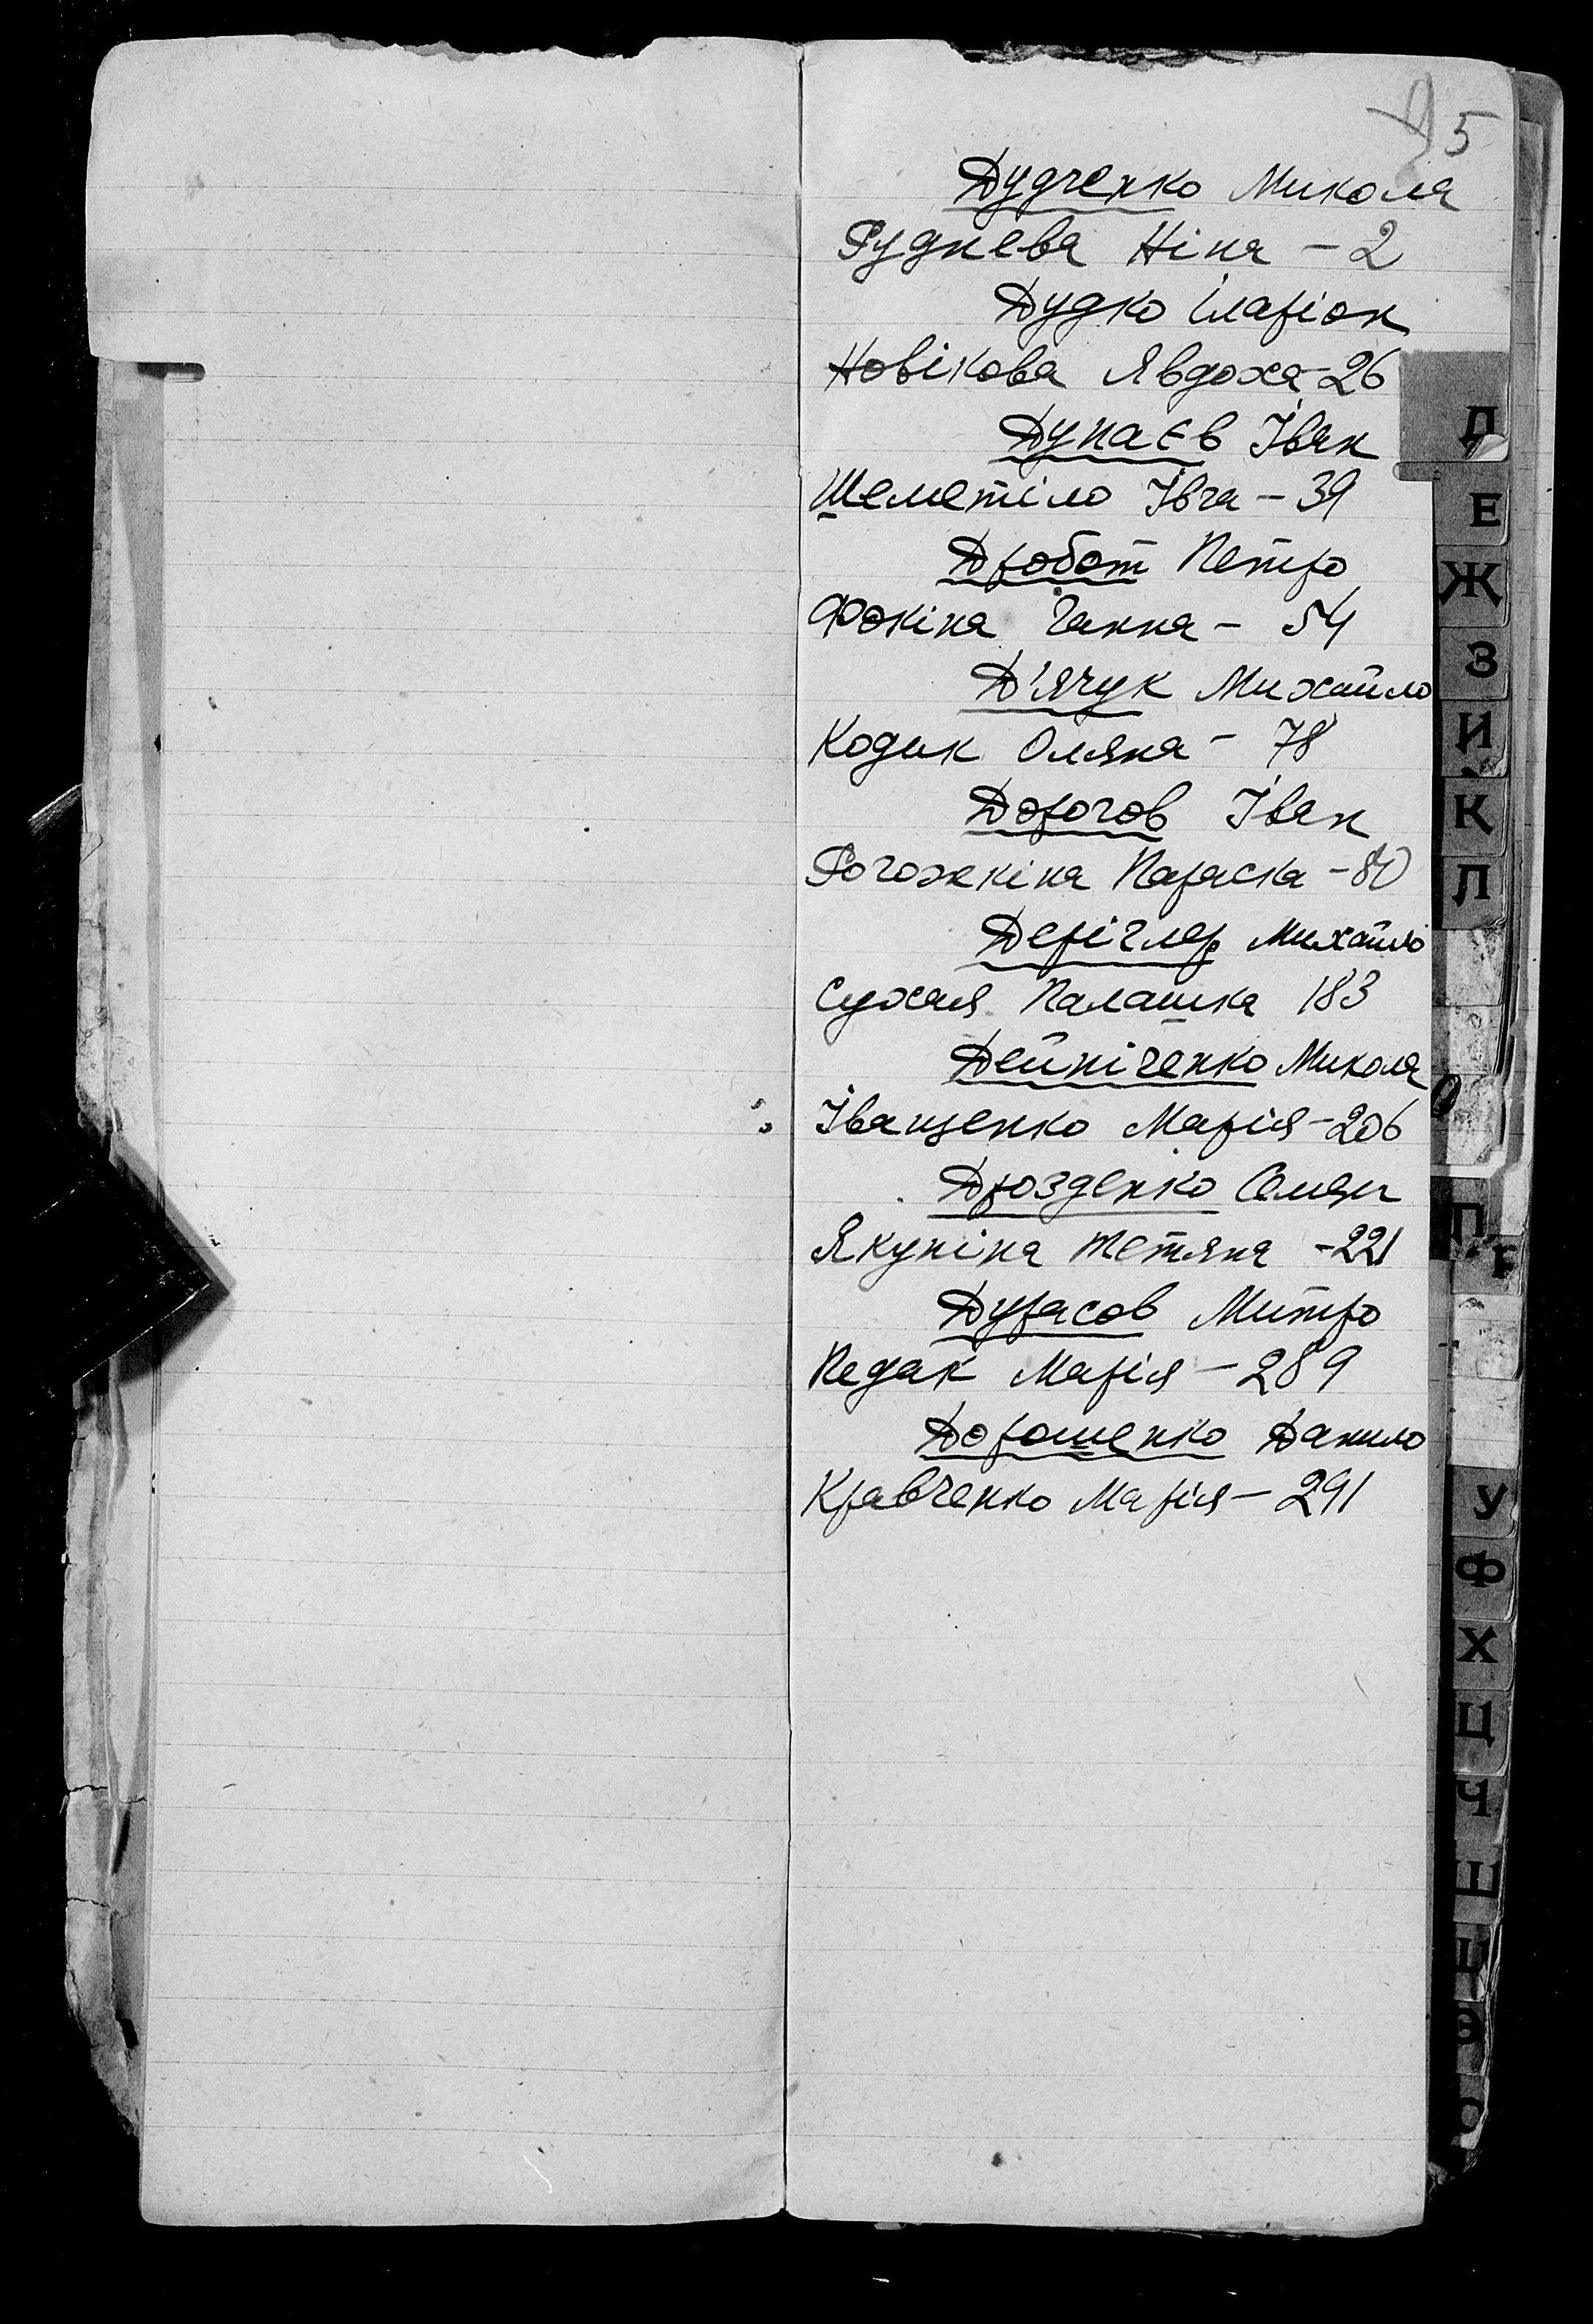 5
Дудченко Микола
Руднева Ніна - 2
Дудко Іларіон
Новікова Явдоха - 26
Дунаєв Іван
Шеметіло Івга - 39
Дробот Петро
Фокіна Ганна - 54
Д'ячук Михайло
Кодик Оляна - 78
Дорогов Іван
Рогожкіна Параска - 80
Д
Е
Ж
З
И
К
Л
Дерігляр Михайло
Сухая Палашка 183
Дейніченко Микола
Іващенко Марія - 206
О
Дрозденко Семен
Якуніна Тетяна - 221
П
Дурасов Митро
Педак Марія - 289
Дорошенко Данило
Кравченко Марія - 291
У
Ф
Х
Ц
Ч